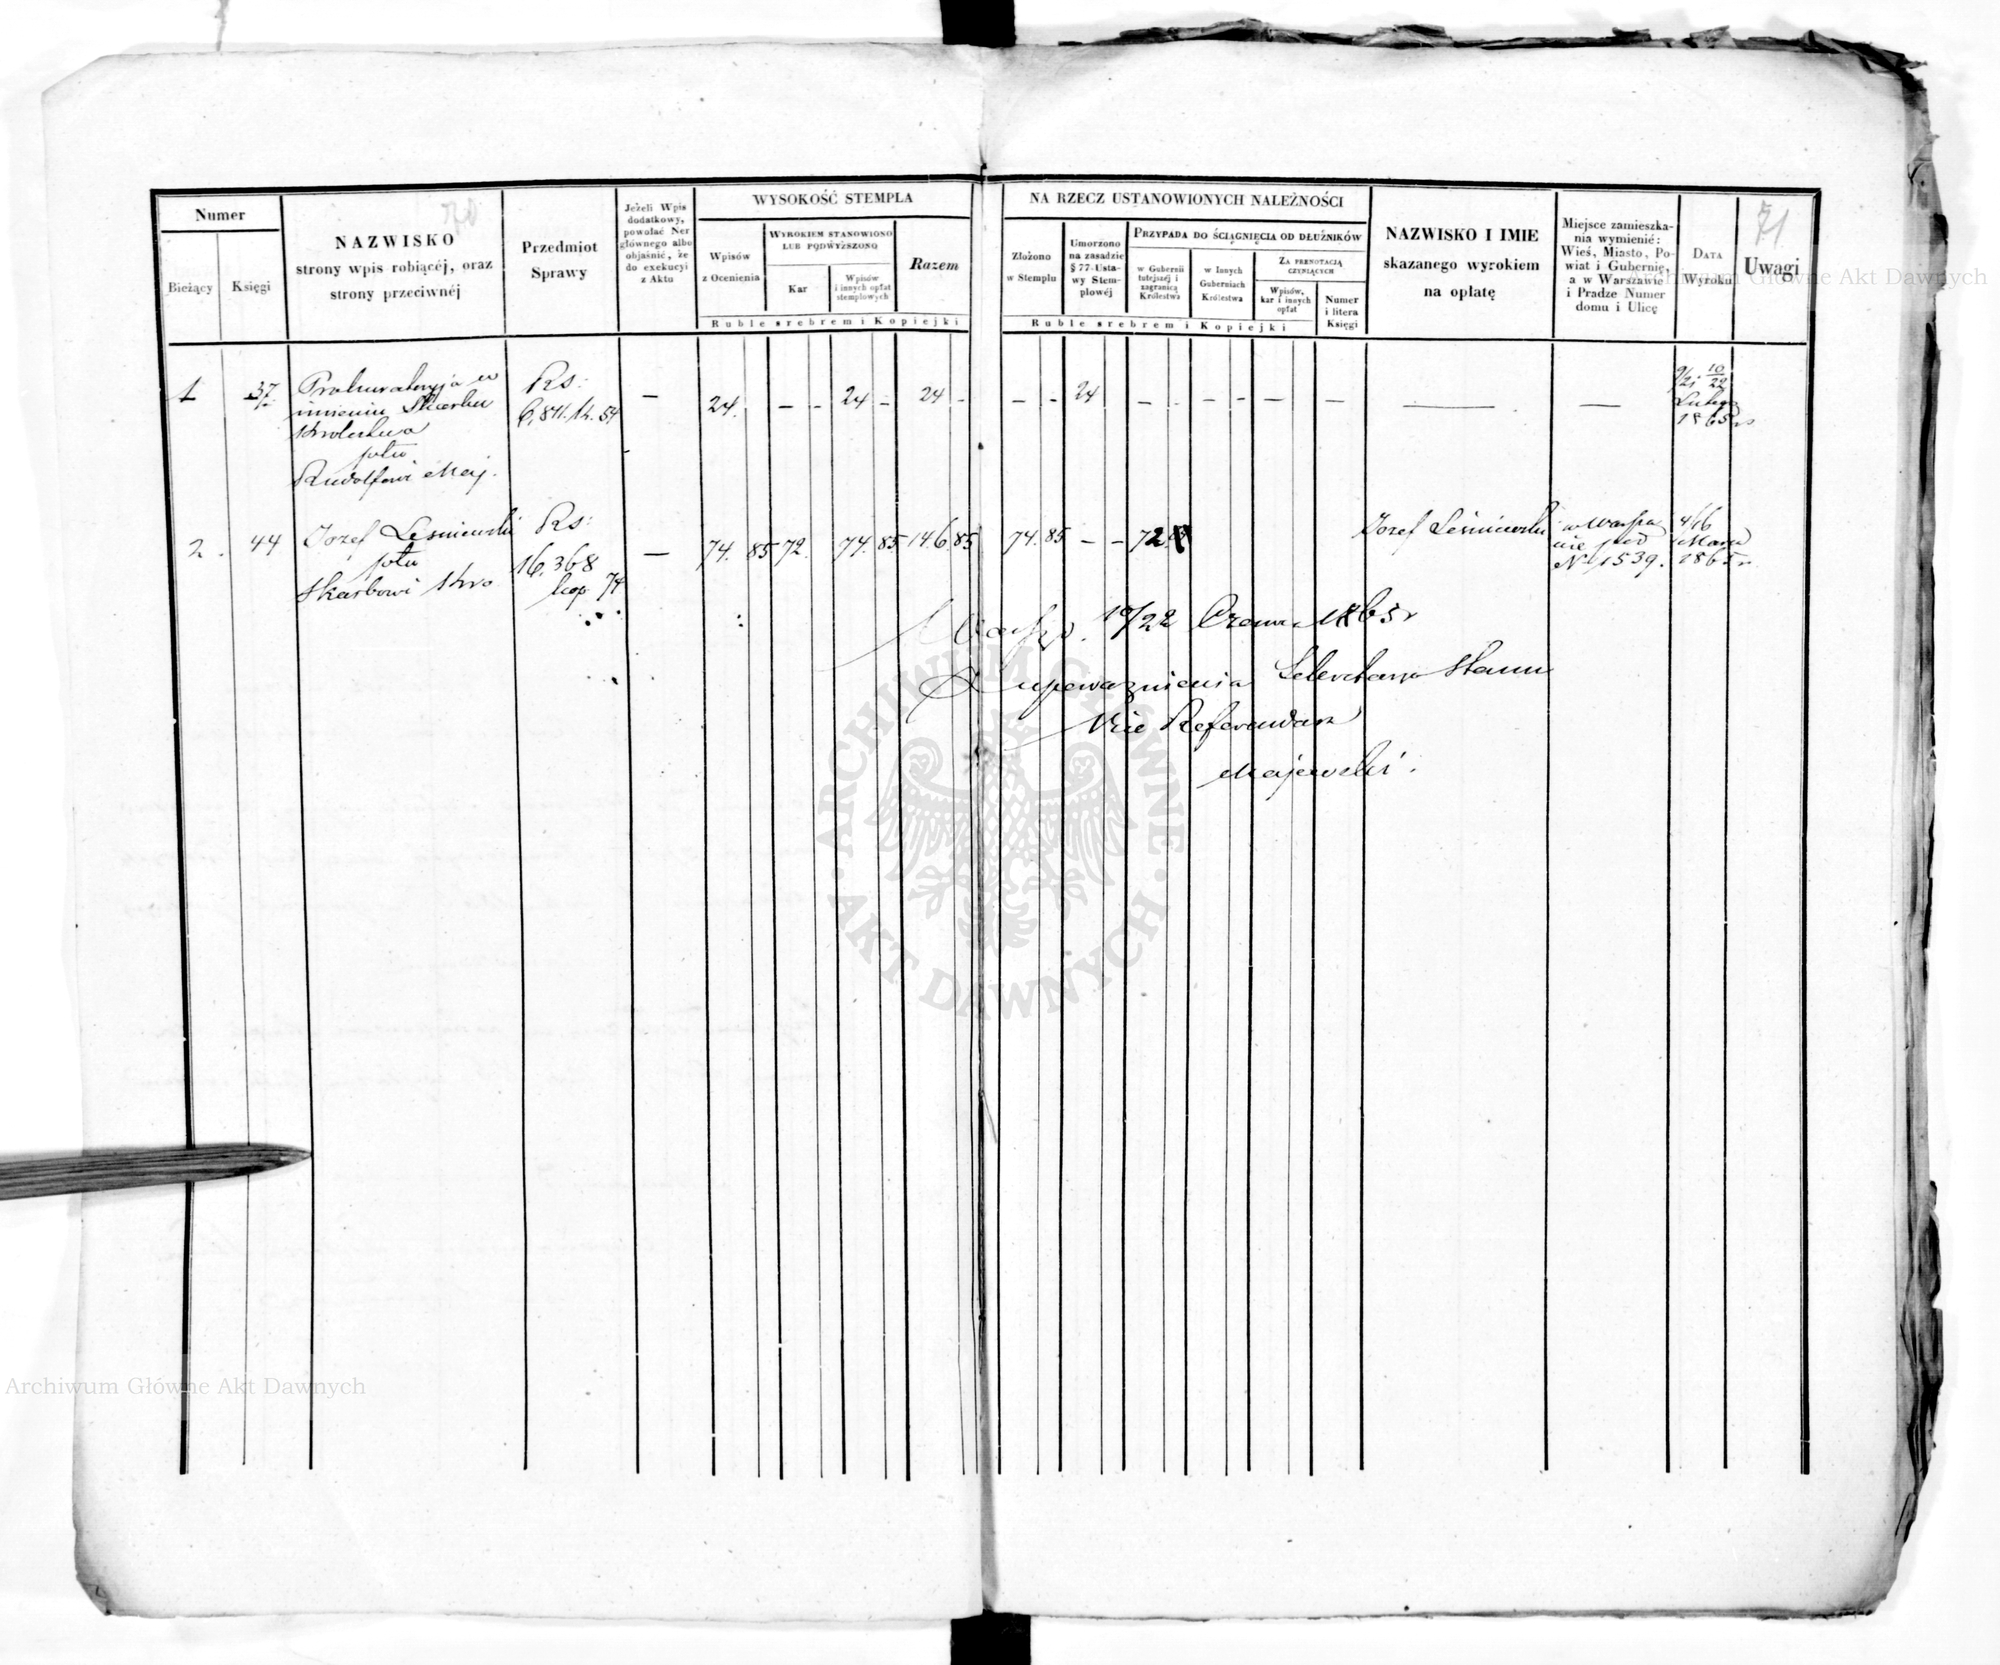 70
71
Numer
Bieżący
Księgi
NAZWISKO
strony wpis robiącéj, oraz
strony przeciwnéj
Przedmiot
Sprawy
Jeżeli Wpis
dodatkowy,
powołać Ner
głównego albo
objaśnić, że
do exekucyi
z Aktu
WYSOKOŚĆ STEMPLA
Wpisów
z Ocenienia
WYROKIEM STANOWIONO
LUB PODWYŻSZONO
Kar
Wpisów
i innych opłat
stemplowych
Razem
Ruble srebrem i Kopiejki
NA RZECZ USTANOWIONYCH NALEŻNOŚCI
Złożono
w Stemplu
Umorzono
na zasadzie
§ 77 Usta-
wy Stem-
plowéj
PRZYPADA DO ŚCIĄGNIĘCIA OD DŁUŻNIKÓW
w Gubernii
tutejszéj i
zagranicą
Królestwa
w Innych
Guberniach
Królestwa
ZA PRENOTACJĄ
CZYNIĄCYCH
Wpisów,
kar i innych
opłat
Numer
i litera
Księgi
Ruble srebrem i Kopiejki
NAZWISKO I IMIE
skazanego wyrokiem
na opłatę
Miejsce zamieszka-
nia wymienić:
Wieś, Miasto, Po-
wiat i Gubernię,
a w Warszawie
i Pradze Numer
domu i Ulicę
DATA
Wyroku
Uwagi
1
37
Prokuratoryja w
imieniu Skarbu
Królestwa
Rudolfowi May.
Rs:
6,811.14.54
—
24.
— -
24 -
24 -
— -
24
— - — - — - —
—
—
10/22
Lutego
1865 r.
2.
44
Jozef Lesniewski
Skarbowi Kro
Rs:
16,368
kop. 74
—
74. 85
72.
74. 85
146. 85
74. 85
— -
72.
Jozef Leśniewski
w Warsza
wie pod
N 1539.
4/16
Marca
1865 r.
Warsz. 10/22 Czerw. 1865 r
Z upoważnienia Sekretarza Stanu
Vice Referendarz
Majewski.
ARCHIWUM GŁÓWNE
AKT DAWNYCH
Archiwum Główne Akt Dawnych
Archiwum Główne Akt Dawnych